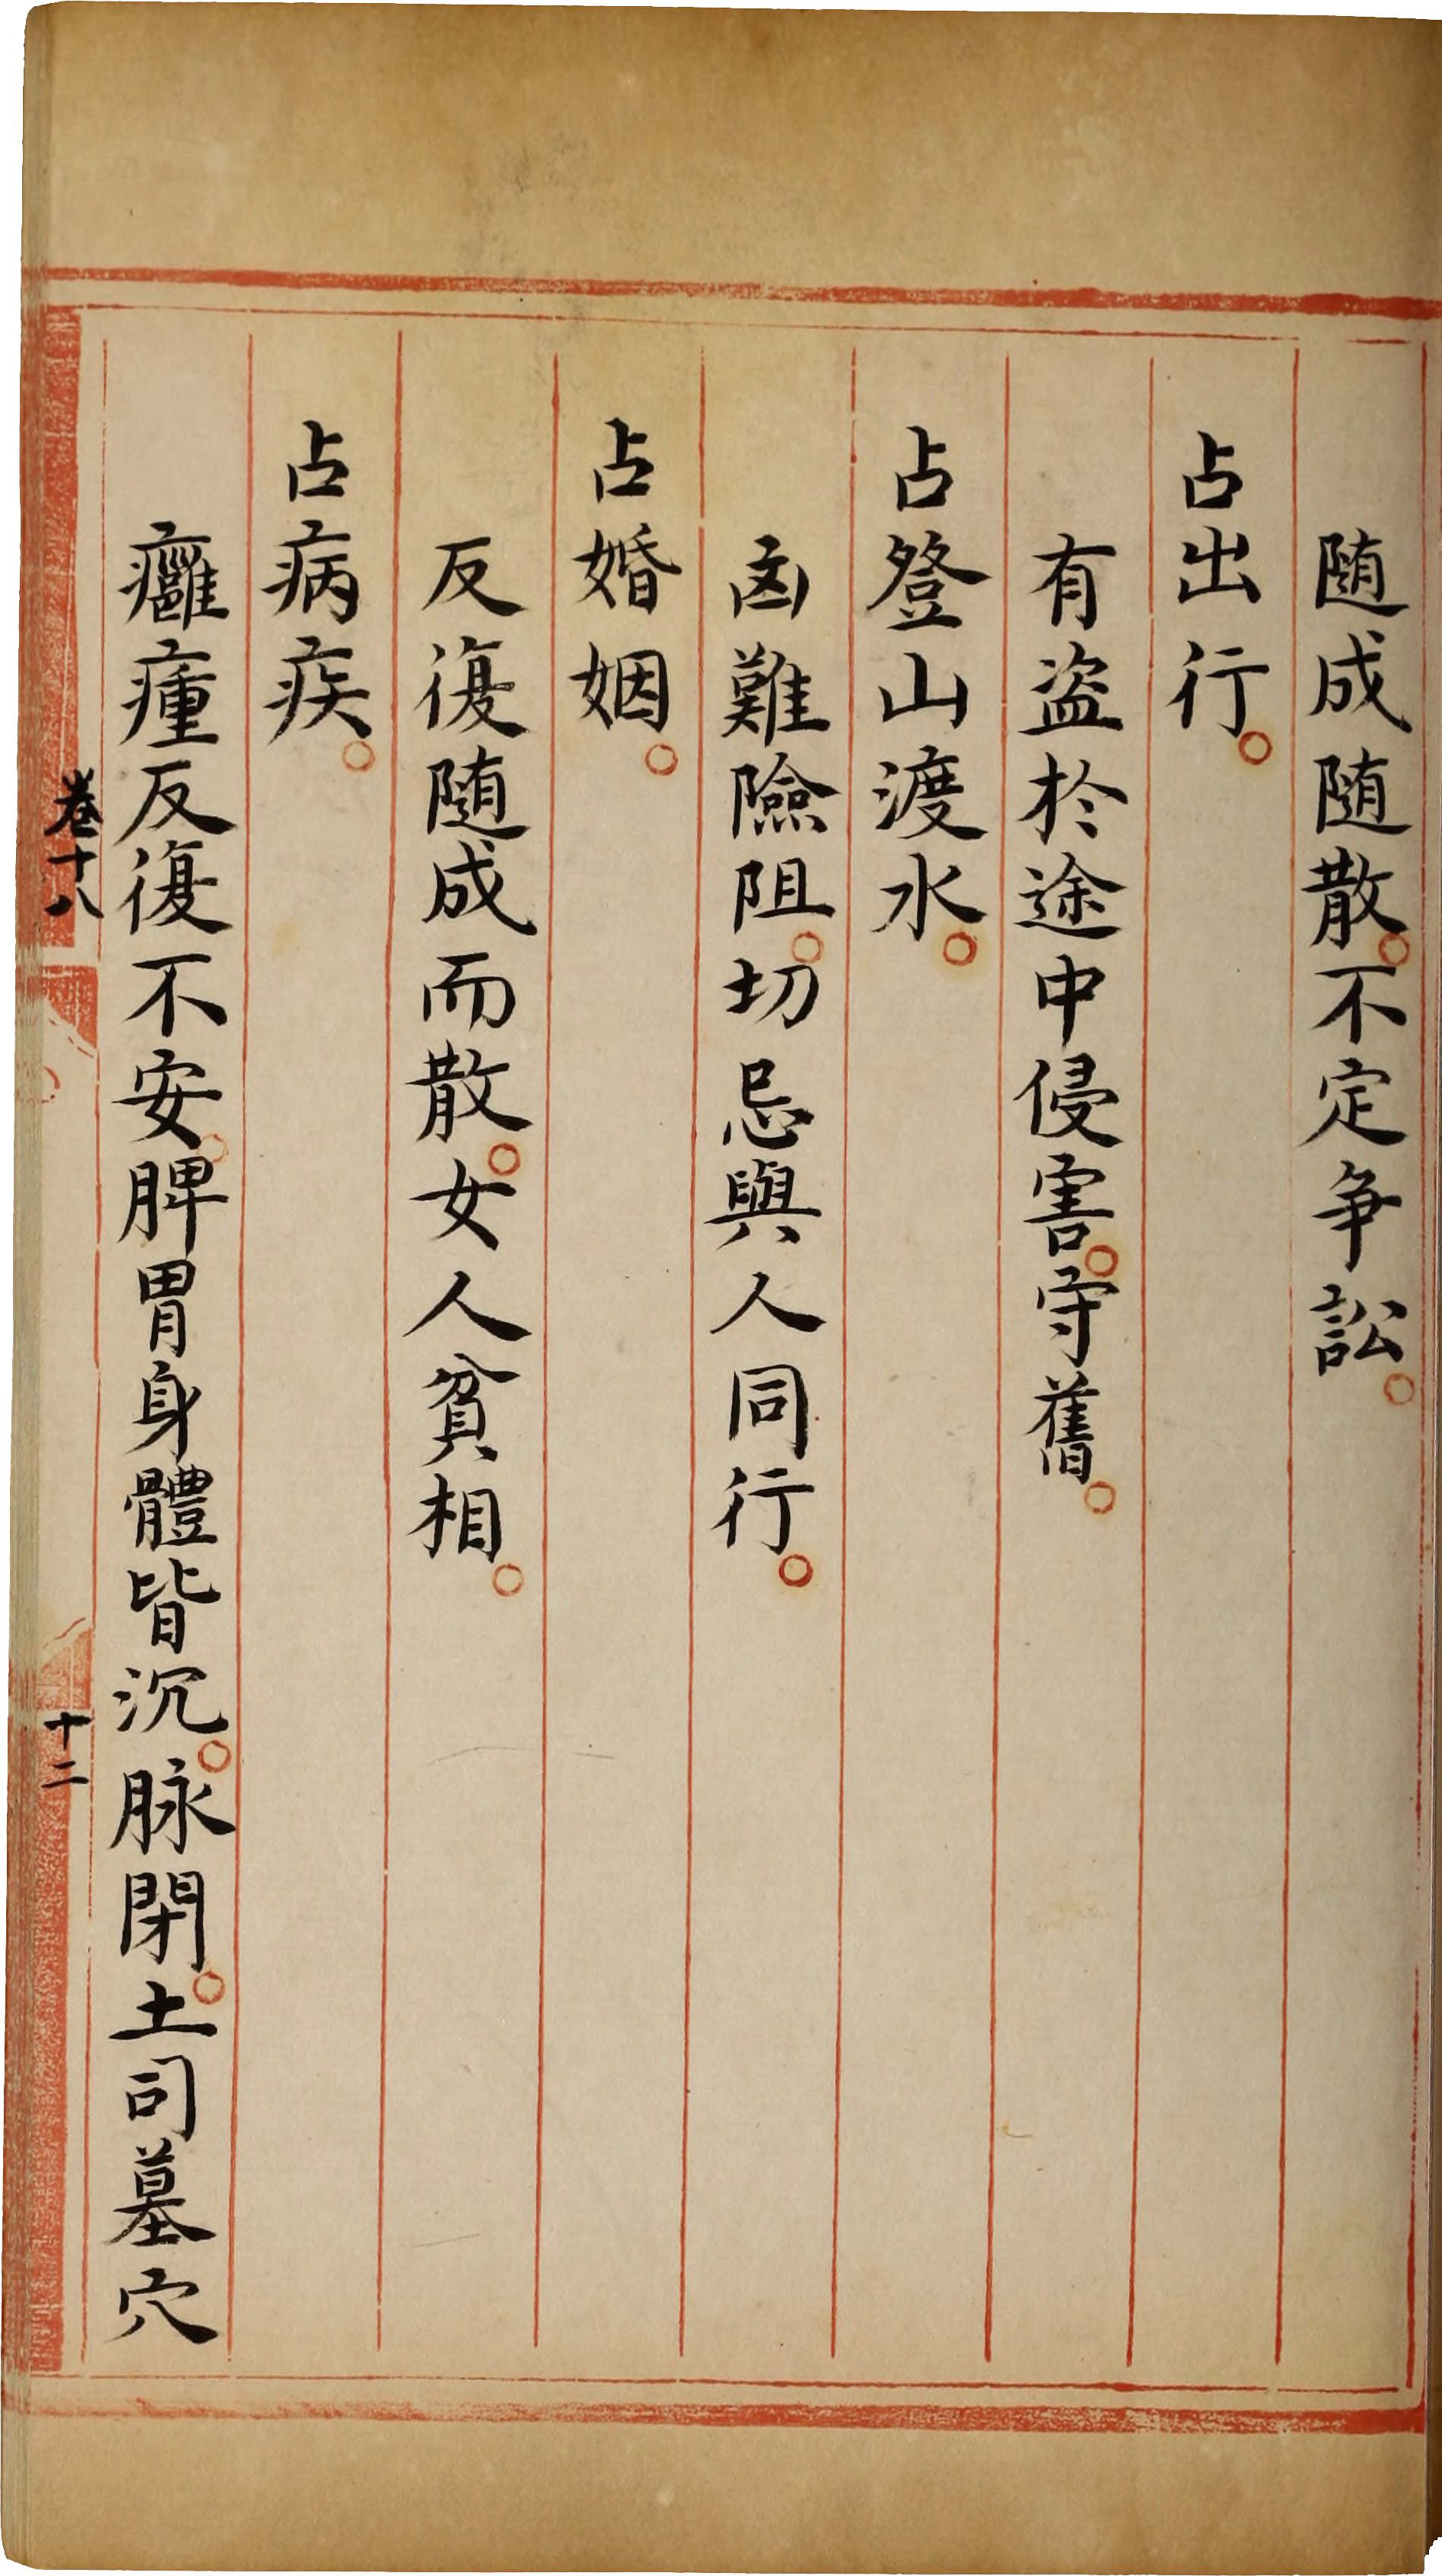 随成随散。不定争訟。
占出行。
有盗於途中侵害。守舊。
占登山渡水。
凾難險阻。切忌與人同行。
占婚姻。
反復随成而散。女人貧相。
占病疾。
癰瘇反復不安。脾胃身體皆沉。脉閉。土司墓穴
卷十八
十二